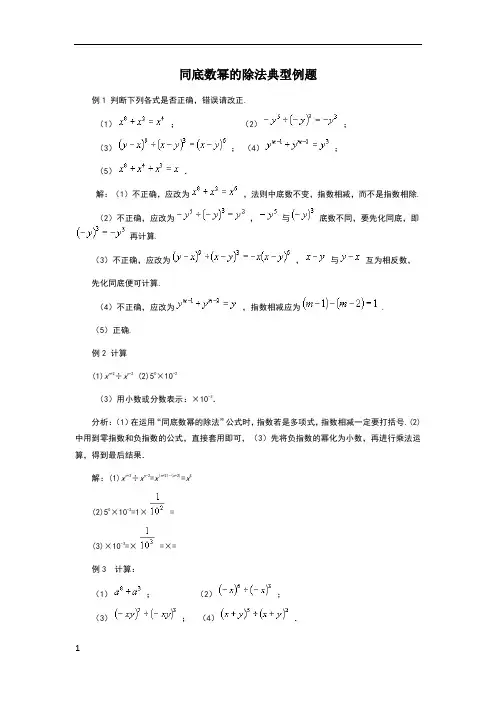 同底数幂的除法典型例题
例1 判断下列各式是否正确，错误请改正.
（1）x⁸÷x²=x⁴；（2）-y⁵÷(-y)³=-y³；
（3）(y-x)⁹÷(x-y)³=(x-y)⁶；（4）yᵐ⁻¹÷yᵐ⁻²=y³；
（5）x⁸÷x⁴÷x³=x．
解：（1）不正确，应改为x⁸÷x²=x⁶，法则中底数不变，指数相减，而不是指数相除.
（2）不正确，应改为-y⁵÷(-y)³=y²，-y⁵与(-y)³底数不同，要先化同底，即
(-y)³=-y³再计算.
（3）不正确，应改为(y-x)⁹÷(x-y)³=-x(x-y)⁶，x-y与y-x互为相反数，
先化同底便可计算.
（4）不正确，应改为yᵐ⁻¹÷yᵐ⁻²=y，指数相减应为(m-1)-(m-2)=1.
（5）正确.
例2 计算
(1)xⁿ⁺²÷xⁿ⁻² (2)5⁰×10⁻²
（3）用小数或分数表示：×10⁻³．
分析：(1)在运用“同底数幂的除法”公式时，指数若是多项式，指数相减一定要打括号．(2)
中用到零指数和负指数的公式，直接套用即可，（3）先将负指数的幂化为小数，再进行乘法运
算，得到最后结果．
解：(1)xⁿ⁺²÷xⁿ⁻²=x⁽ⁿ⁺²⁾⁻⁽ⁿ⁻²⁾=x⁴
(2)5⁰×10⁻²=1×1/10²=
(3)×10⁻³=×1/10³=×=
例3 计算：
（1）a⁸÷a³；（2）(-x)⁶÷(-x)²；
（3）(-xy)⁷÷(-xy)²；（4）(x+y)⁵÷(x+y)²．
1